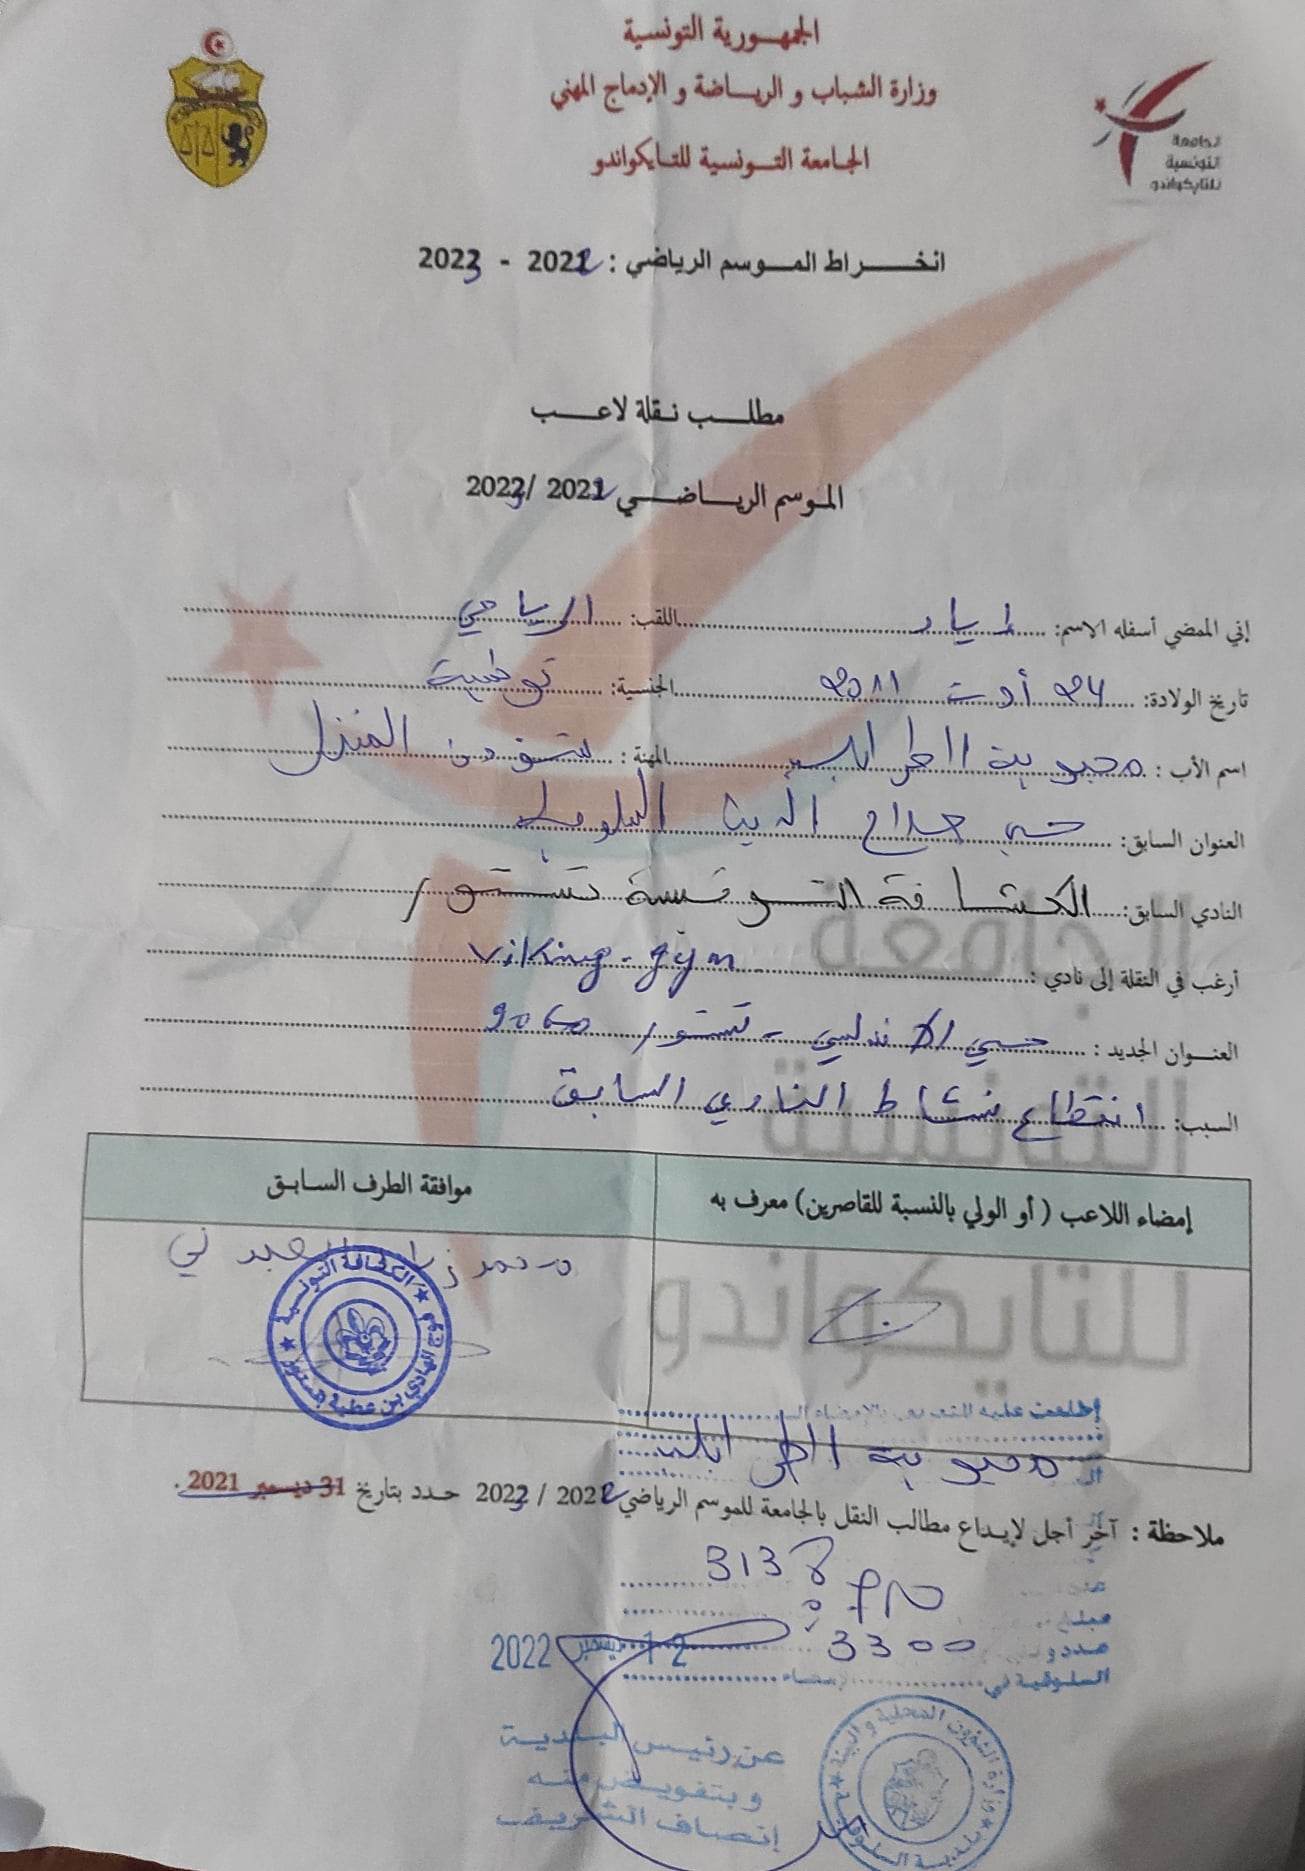 الجمهورية التونسية
وزارة الشباب و الرياضة و الإدماج المهني
الجامعة التونسية للتايكواندو
الجامعة
التونسية
للتايكواندو
انخراط الموسم الرياضي : 2022 - 2023
مطلب نقلة لاعب
الموسم الرياضي 2022 / 2023
إني الممضي أسفله الاسم: اياد اللقب: الرياحي
تاريخ الولادة: 24 أوت 2011 الجنسية: تونسية
اسم الأب : محبوبية الطرابلسي المهنة : شؤون المنزل
العنوان السابق: حي الدين السلوقية
النادي السابق: الكشافة التونسية تستور
أرغب في النقلة إلى نادي : viking-gym
العنوان الجديد : حي الاندلسي - تستور 9060
السبب: انقطاع نشاط النادي السابق
إمضاء اللاعب ( أو الولي بالنسبة للقاصرين) معرف به
موافقة الطرف السابق
محمد
الكشافة التونسية
فوج الهادي بن عطية بتستور
إطلعت عليه للتعريف بالإمضاء
محبوبية الطرابلسي
ملاحظة : آخر أجل لإيداع مطالب النقل بالجامعة للموسم الرياضي 2022 / 2023 حدد بتاريخ 31 ديسمبر 2021 .
3138
مبلغ
3300
12 ديسمبر 2022
السلوقية في الإمضاء
عن رئيس البلدية
وبتفويض منه
إنصاف الشريف
وزارة الشؤون المحلية و البيئة
بلدية السلوقية